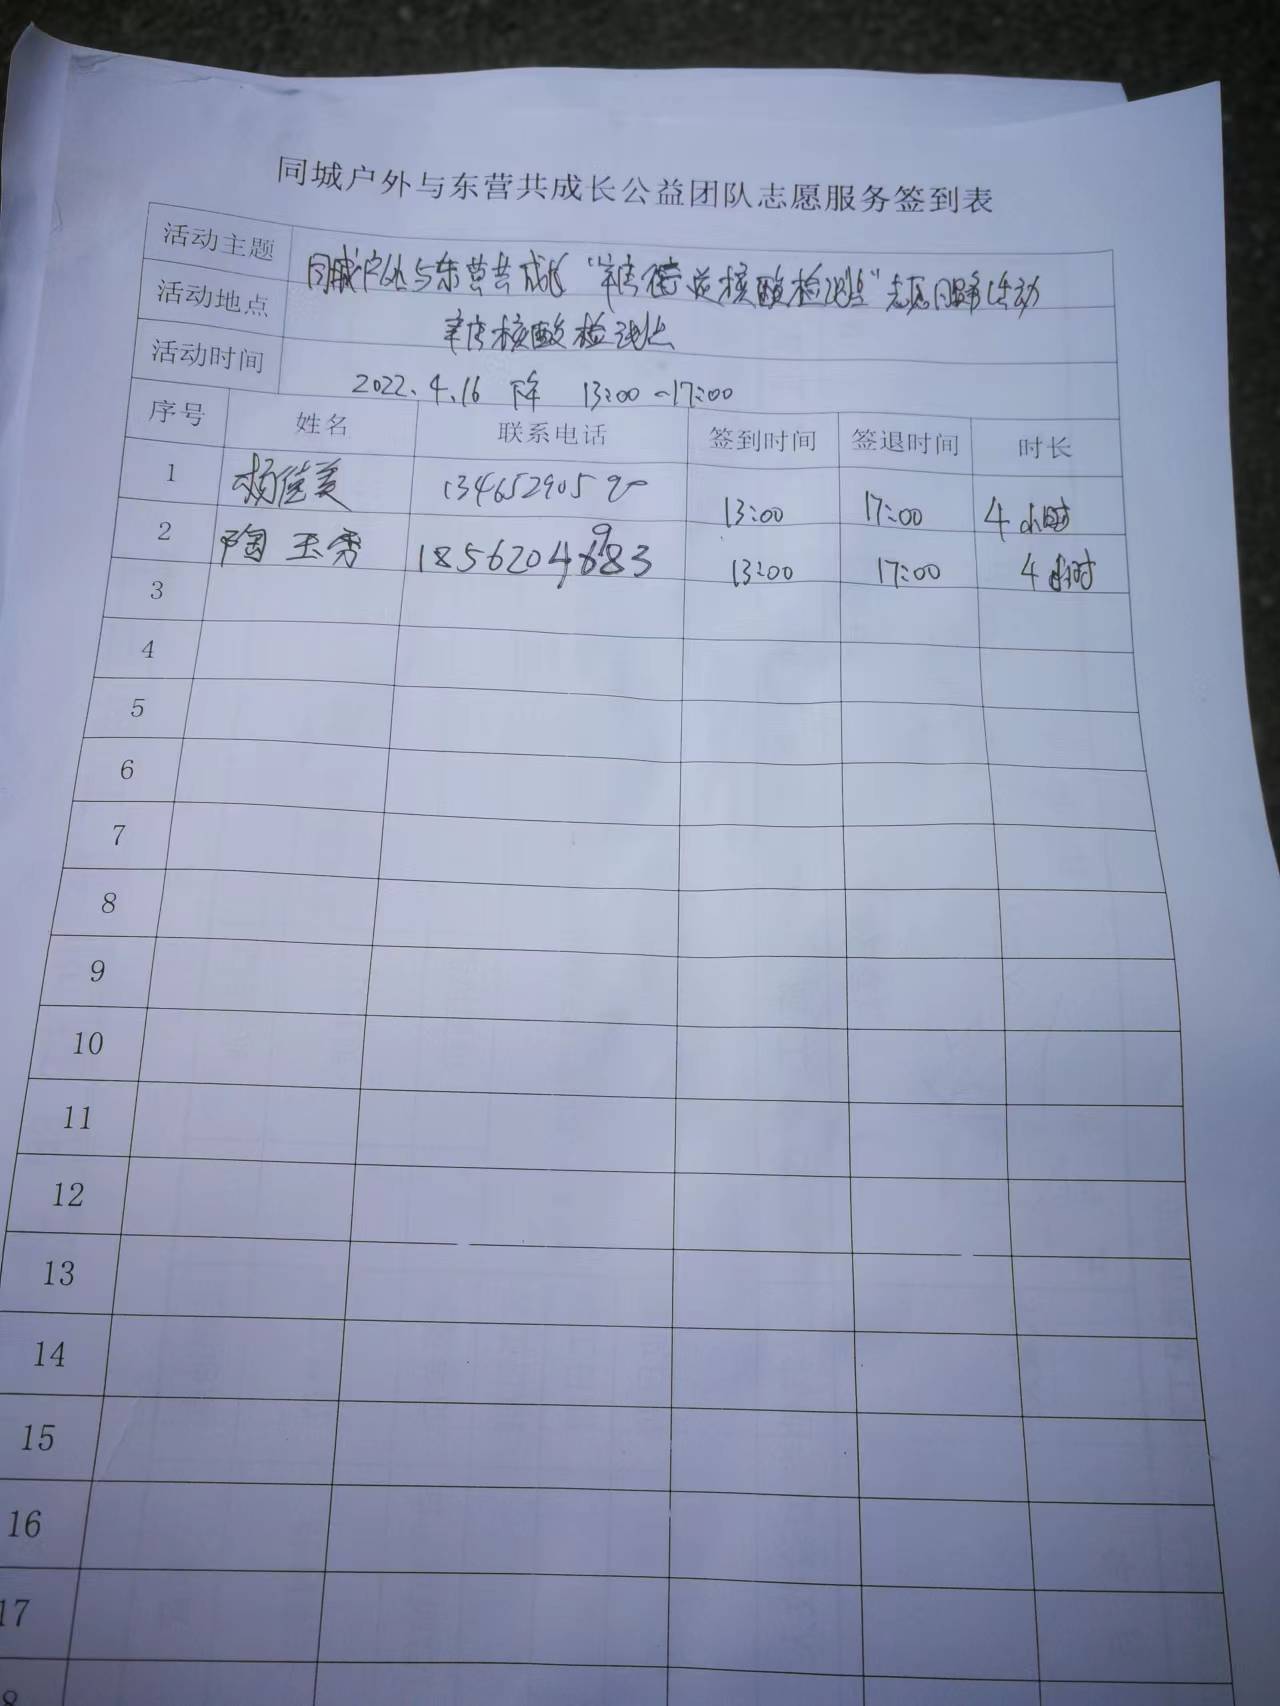 同城户外与东营共成长公益团队志愿服务签到表
活动主题 同城户外与东营共成长“辛店街道核酸检测点”志愿服务活动
活动地点 辛店核酸检测点
活动时间 2022.4.16 下午 13:00-17:00
序号 姓名 联系电话 签到时间 签退时间 时长
1 杨佳美 13:00 17:00 4小时
2 陶玉秀 13:00 17:00 4小时
3
4
5
6
7
8
9
10
11
12
13
14
15
16
17
8